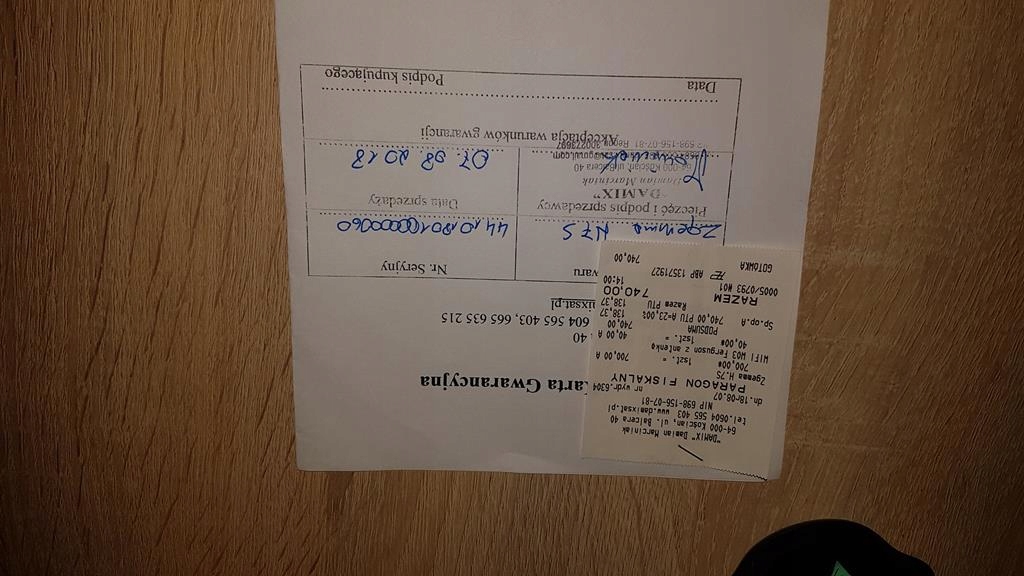 Karta Gwarancyjna
40
604 565 403, 665 635 215
ixsat.pl
waru
Nr. Seryjny
Zgemma H7S
Pieczęć i podpis sprzedawcy
Data sprzedaży
"DAMIX"
Damian Marciniak
64-000 Kościan, ul. Balcera 40
07 08 2018
698-156-07-81 Regon 300273697
Akceptacja warunków gwarancji
Data
Podpis kupującego
"DAMIX" Damian Marciniak
64-000 Kościan, ul. Balcera 40
tel.0604 565 403 www.damixsat.pl
NIP 698-156-07-81
dn.18r08.07 nr wydr.6304
PARAGON FISKALNY
Zgemma H.7S
700,00* 1szt. = 700,00 A
WIFI W03 Ferguson z antenka
40,00* 1szt. = 40,00 A
PODSUMA 740,00
Sp.op.A 740,00 PTU A=23,00% 138,37
Razem PTU 138,37
RAZEM 740,00
0005/0793 #01 14:00
ABP 13571927
GOTÓWKA 740,00